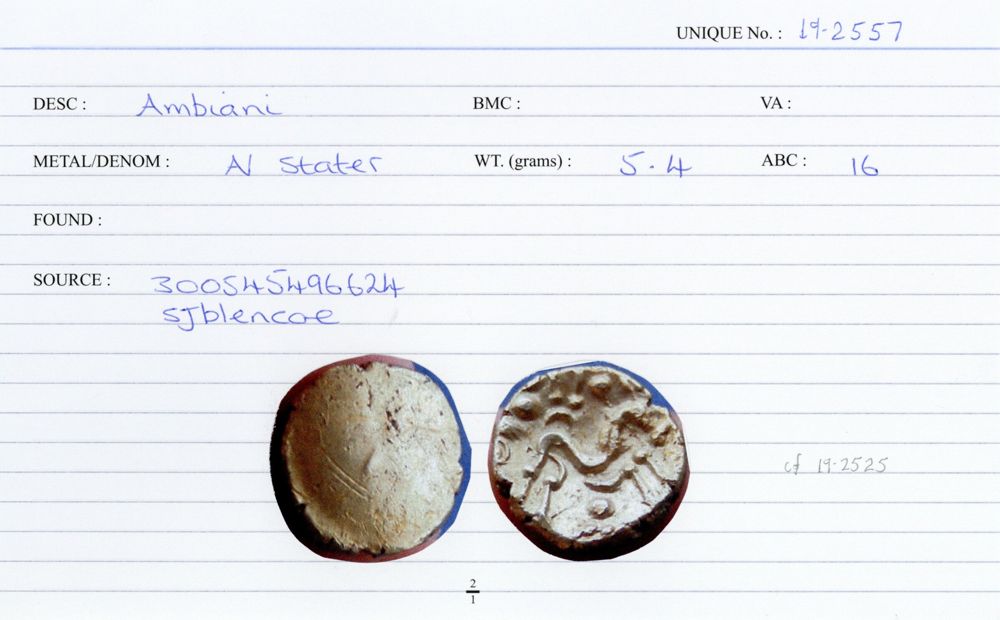 UNIQUE No. : 19-2557
DESC : Ambiani BMC : VA :
METAL/DENOM : N Stater WT. (grams) : 5.4 ABC : 16
FOUND :
SOURCE : 300545496624
sjblencoe
cf 19-2525
2
1